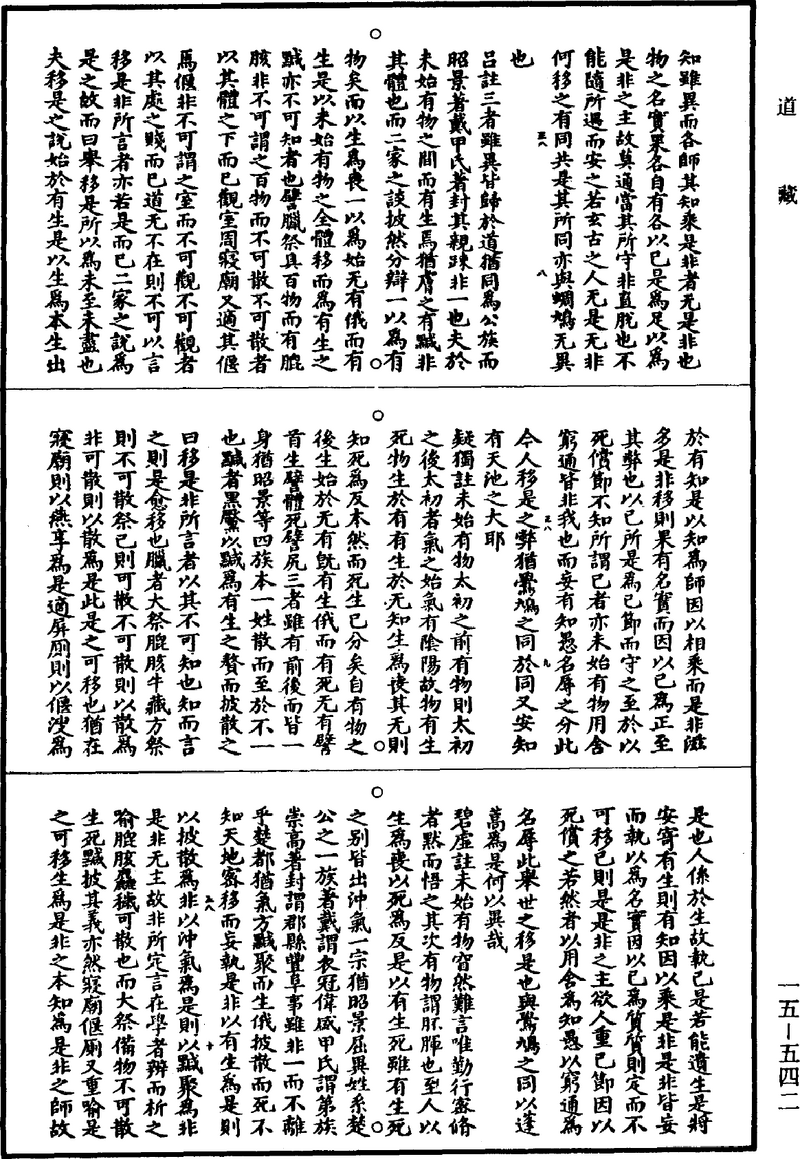 道藏
知雖異而各師其知乘是非者无是非也
物之名實果各自有各以已是為足以為
是非之主故莫適當其所守非直脫也不
能隨所遇而安之若玄古之人无是无非
何移之有同共是其所同亦與蜩鳩无異
也
呂註三者雖異皆歸於道猶同為公族而
昭景著戴甲氏著封其親踈非一也夫於
未始有物之間而有生焉猶膚之有黬非
其體也而二家之談披然分辯一以為有
物矣而以生為喪一以為始无有俄而有
生是以未始有物之全體移而為有生之
黬亦不可知者也譬臘祭具百物而有膍
胲非不可謂之百物而不可散不可散者
以其體之下而已觀室周寢廟又適其偃
焉偃非不可謂之室而不可觀不可觀者
以其處之賤而已道无不在則不可以言
移是非所言者亦若是而已二家之說為
是之故而曰舉移是所以為未至未盡也
夫移是之說始於有生是以生為本生出
於有知是以知為師因以相乘而是非滋
多是非移則果有名實而因以已為正至
其弊也以已所是為已節而守之至於以
死償節不知所謂已者亦未始有物用舍
窮通皆非我也而妄有知愚名辱之分此
今人移是之弊猶鷽鳩之同於同又安知
有天池之大耶
疑獨註未始有物太初之前有物則太初
之後太初者氣之始氣有陰陽故物有生
死物生於有有生於无知生為喪其无則
知死為反本然而死生已分矣自有物之
後生始於无有旣有生俄而有死无有譬
首生譬體死譬尻三者雖有前後而皆一
身猶昭景等四族本一姓散而至於不一
也黬者黑黶以黬為有生之贅而披散之
曰移是非所言者以其不可知也知而言
之則是愈移也臘者大祭膍胲牛藏方祭
則不可散祭已則可散不可散則以散為
非可散則以散為是此是之可移也猶在
寢廟則以燕享為是適屏厠則以偃溲為
是也人係於生故執已是若能遺生是將
安寄有生則有知因以乘是非是非皆妄
而執以為名實因以已為質質則定而不
可移已則是是非之主欲人重已節因以
死償之若然者以用舍為知愚以窮通為
名辱此舉世之移是也與鷽鳩之同以蓬
蒿為是何以異哉
碧虛註未始有物窅然難言唯勤行密修
者黙而悟之其次有物謂胚腪也至人以
生為喪以死為反是以有生死雖有生死
之別皆出沖氣一宗猶昭景屈異姓系楚
公之一族著戴謂衣冠偉盛甲氏謂第族
崇高著封謂郡縣豐阜事雖非一而不離
乎楚都猶氣方黬聚而生俄披散而死不
知天地密移而妄執是非以有生為是則
以披散為非以沖氣為是則以黬聚為非
是非无主故非所定言在學者辨而析之
喻膍胲麤穢可散也而大祭備物不可散
生死黬披其義亦然寢廟偃厠又重喻是
之可移生為是非之本知為是非之師故
一五—五四二